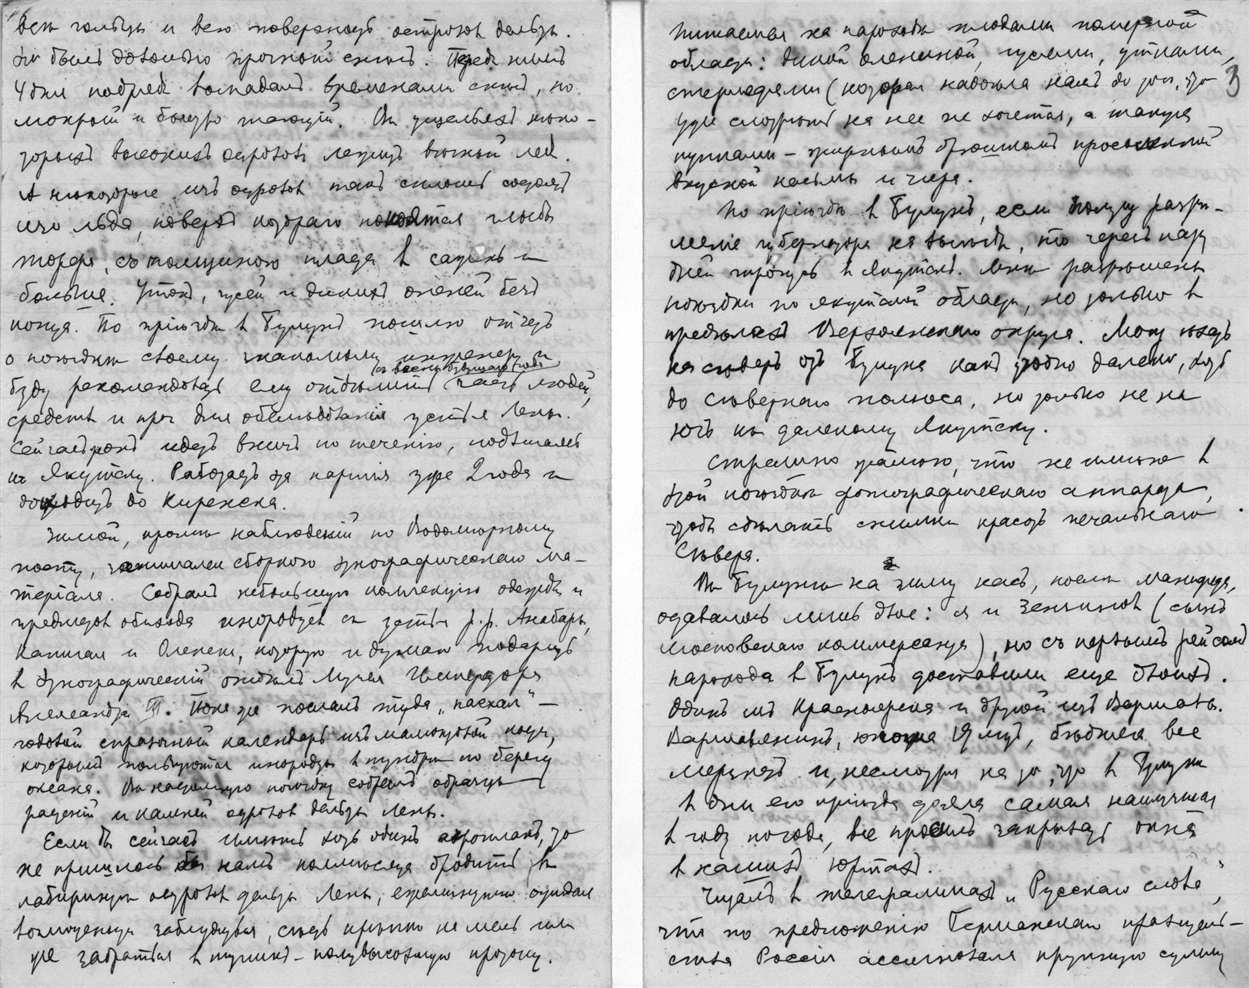 всѣ гольцы и всю поверхность острова дельты.
былъ довольно прочный снѣгъ. Передъ нимъ
4 дня подрядъ выпадалъ временами снѣгъ, но
мокрый и быстро тающій. Въ ущельяхъ нѣко-
торыхъ высокихъ острововъ лежитъ вѣчный ледъ.
А нѣкоторые изъ острововъ такъ сплошь состоятъ
изо льда, поверхъ котораго покоятся глыбы
торфа, съ толщиною пласта в сажень и
больше. Утокъ, гусей и дикихъ оленей безъ
конца. По пріѣздѣ в Булунъ пошлю отчетъ
о поѣздкѣ своему знакомому инженеру и
буду рекомендовать ему часть людей,
средствъ и проч для обслѣдованія устья Лены.
Сейчасъ идетъ внизъ по теченію, подвигаясь
къ Якутску. Работаетъ эта партія уже 2 года и
до Киренска.
Зимой, кромѣ наблюденій по Водомѣрному
посту, занимался сборкою этнографическаго ма-
теріала. Собралъ небольшую коллекцію одежды и
предметовъ обихода инородцевъ съ р.р. Анабары,
и Оленека, которую и думаю подарить
в этнографическій отдѣлъ Музея Императора
Александра III. Пока же послалъ туда „пасхал" –
годовой справочный календарь изъ мамонтовой кости,
которымъ пользуются инородцы в тундрѣ по берегу
океана. В поѣздку собралъ образцы
растеній и камней острововъ дельты Лены.
Если бъ сейчасъ имѣть хоть одинъ аэропланъ, то
не пришлось бы намъ полмѣсяца бродить в
лабиринтѣ острововъ дельты Лены, ежеминутно ожидая
заблудиться, сѣсть крѣпко на мель или
же забраться в тупикъ – полувысохшую протоку.
Питаемся на пароходѣ плодами полярной
области: дикой олениной, гусями, утками,
стерлядями (которая надоѣла намъ до того, что
уже смотрѣть на нее не хочется, а также
пупками – жирнымъ брюшкомъ просоленной
вкусной нельмы и чира.
По пріѣздѣ в Булунъ, если получу разрѣ-
шеніе губернатора на выѣздъ, то черезъ пару
дней тронусь в Якутскъ. Мнѣ разрѣшены
поѣздки по Якутской области, но только в
предѣлахъ Верхоянскаго округа. Могу ѣхать
на сѣверъ отъ Булуна какъ угодно далеко, хоть
до сѣвернаго полюса, но только не на
югъ къ далекому Якутску.
Страшно жалѣю, что не имѣю в
этой поѣздкѣ фотографическаго аппарата,
чтобъ сдѣлать снимки красотъ печальнаго
Сѣвера.
Въ Булунѣ на зиму насъ, послѣ манифеста,
оставалось лишь двое: я и Зензиновъ (сынъ
московскаго коммерсанта), но съ первымъ рейсомъ
парохода в Булунъ доставили еще двоихъ.
Одинъ изъ Красноярска и другой изъ Варшавы.
Варшавянинъ, юноша 19 лѣтъ, бѣдняга все
мерзнетъ и, несмотря на то, что в Булунѣ
в дни его пріѣзда стояла самая наилучшая
в году погода, все просилъ закрывать окна
в нашихъ юртахъ.
Читалъ в телеграммахъ „Русскаго слова",
что по предложенію Германскаго правитель-
ства Россія ассигновала крупную сумму